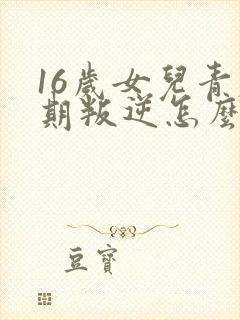 16歲女兒青
期叛逆怎麼
豆寶